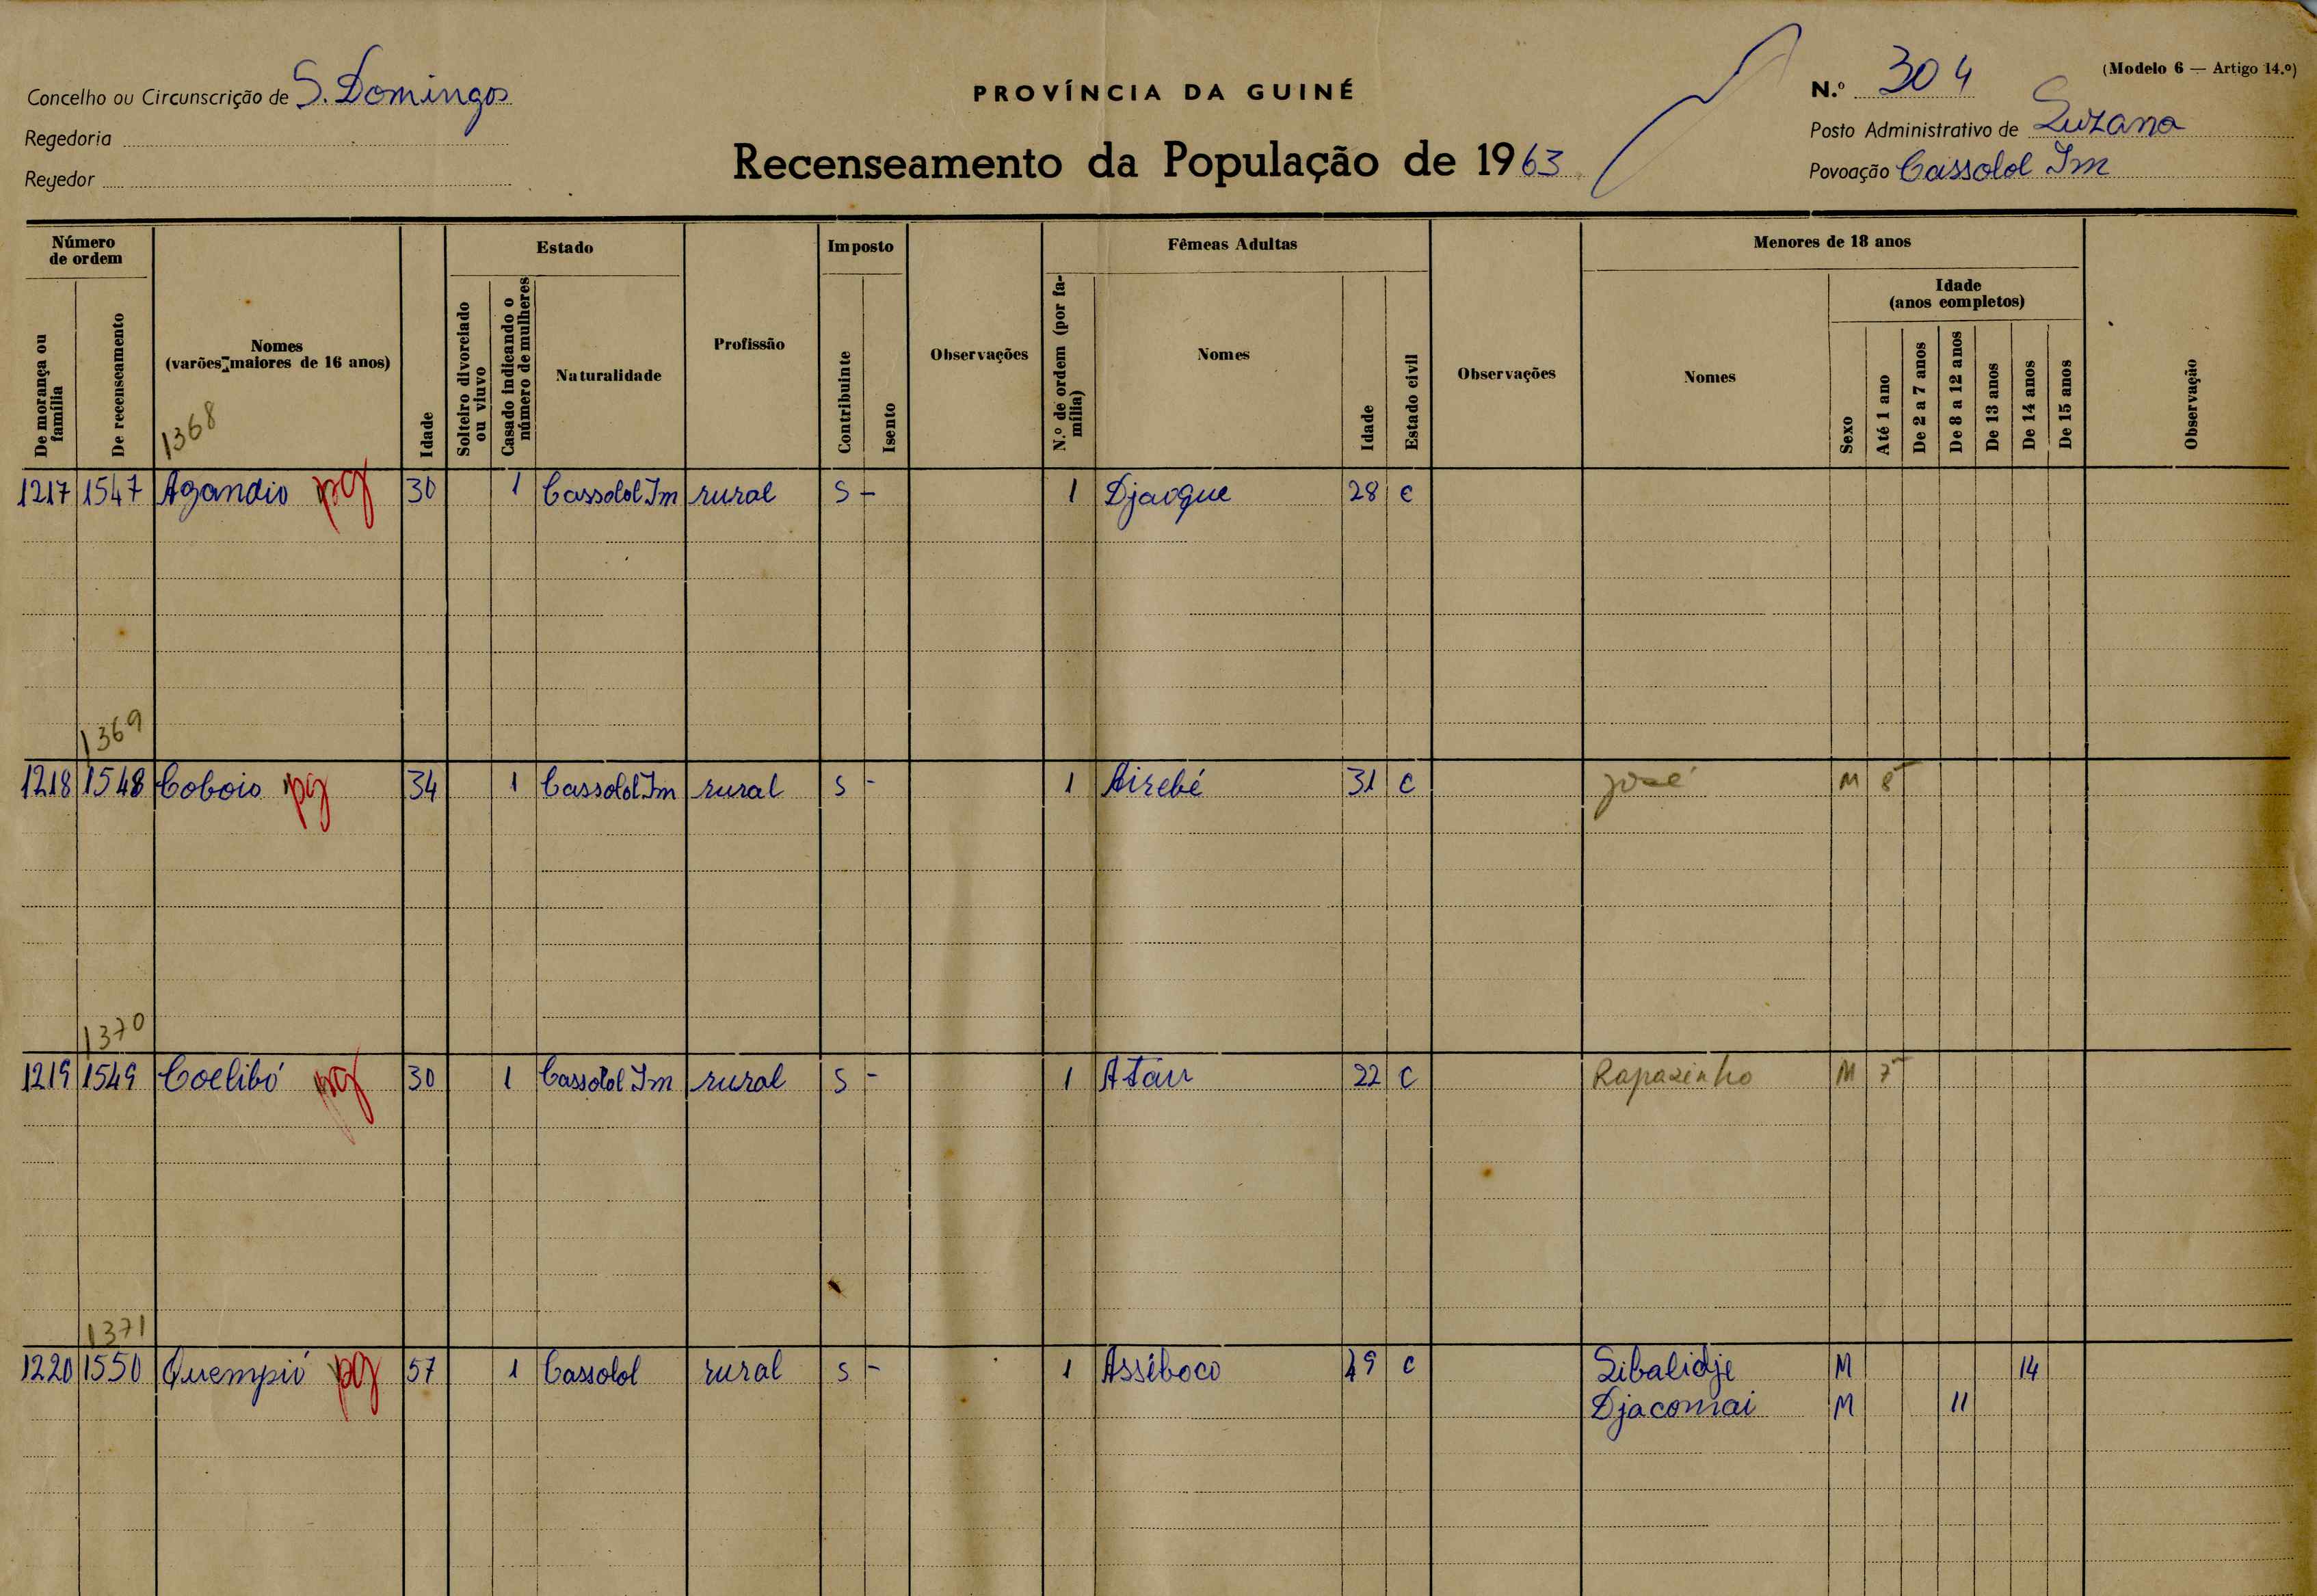 Concelho ou Circunscrição de S. Domingos
Regedoria
Regedor
PROVÍNCIA DA GUINÉ
Recenseamento da População de 1963
(Modelo 6 — Artigo 14.º)
N.º 304
Posto Administrativo de Suzana
Povoação Cassolol Im
Número de ordem
De morança ou família
De recenseamento
Nomes (varões maiores de 16 anos)
1368
Idade
Estado
Solteiro divorciado ou viuvo
Casado indicando o número de mulheres
Naturalidade
Profissão
Imposto
Contribuinte
Isento
Observações
Fêmeas Adultas
N.º de ordem (por família)
Nomes
Idade
Estado civil
Observações
Menores de 18 anos
Nomes
Sexo
Idade (anos completos)
Até 1 ano
De 2 a 7 anos
De 8 a 12 anos
De 13 anos
De 14 anos
De 15 anos
Observação
1217 1547 Agandio pg 30 1 Cassolol Im rural S - 1 Djaogue 28 C
1369
1218 1548 Coboio pg 34 1 Cassolol Im rural S - 1 Airebé 31 C José M
1370
1219 1549 Coelibó pg 30 1 Cassolol Im rural S - 1 Atau 22 C Rapazinho M
1371
1220 1550 Quempió pg 57 1 Cassolol rural S - 1 Asséboco 49 C Sibalidje M 14
Djacomai M 11